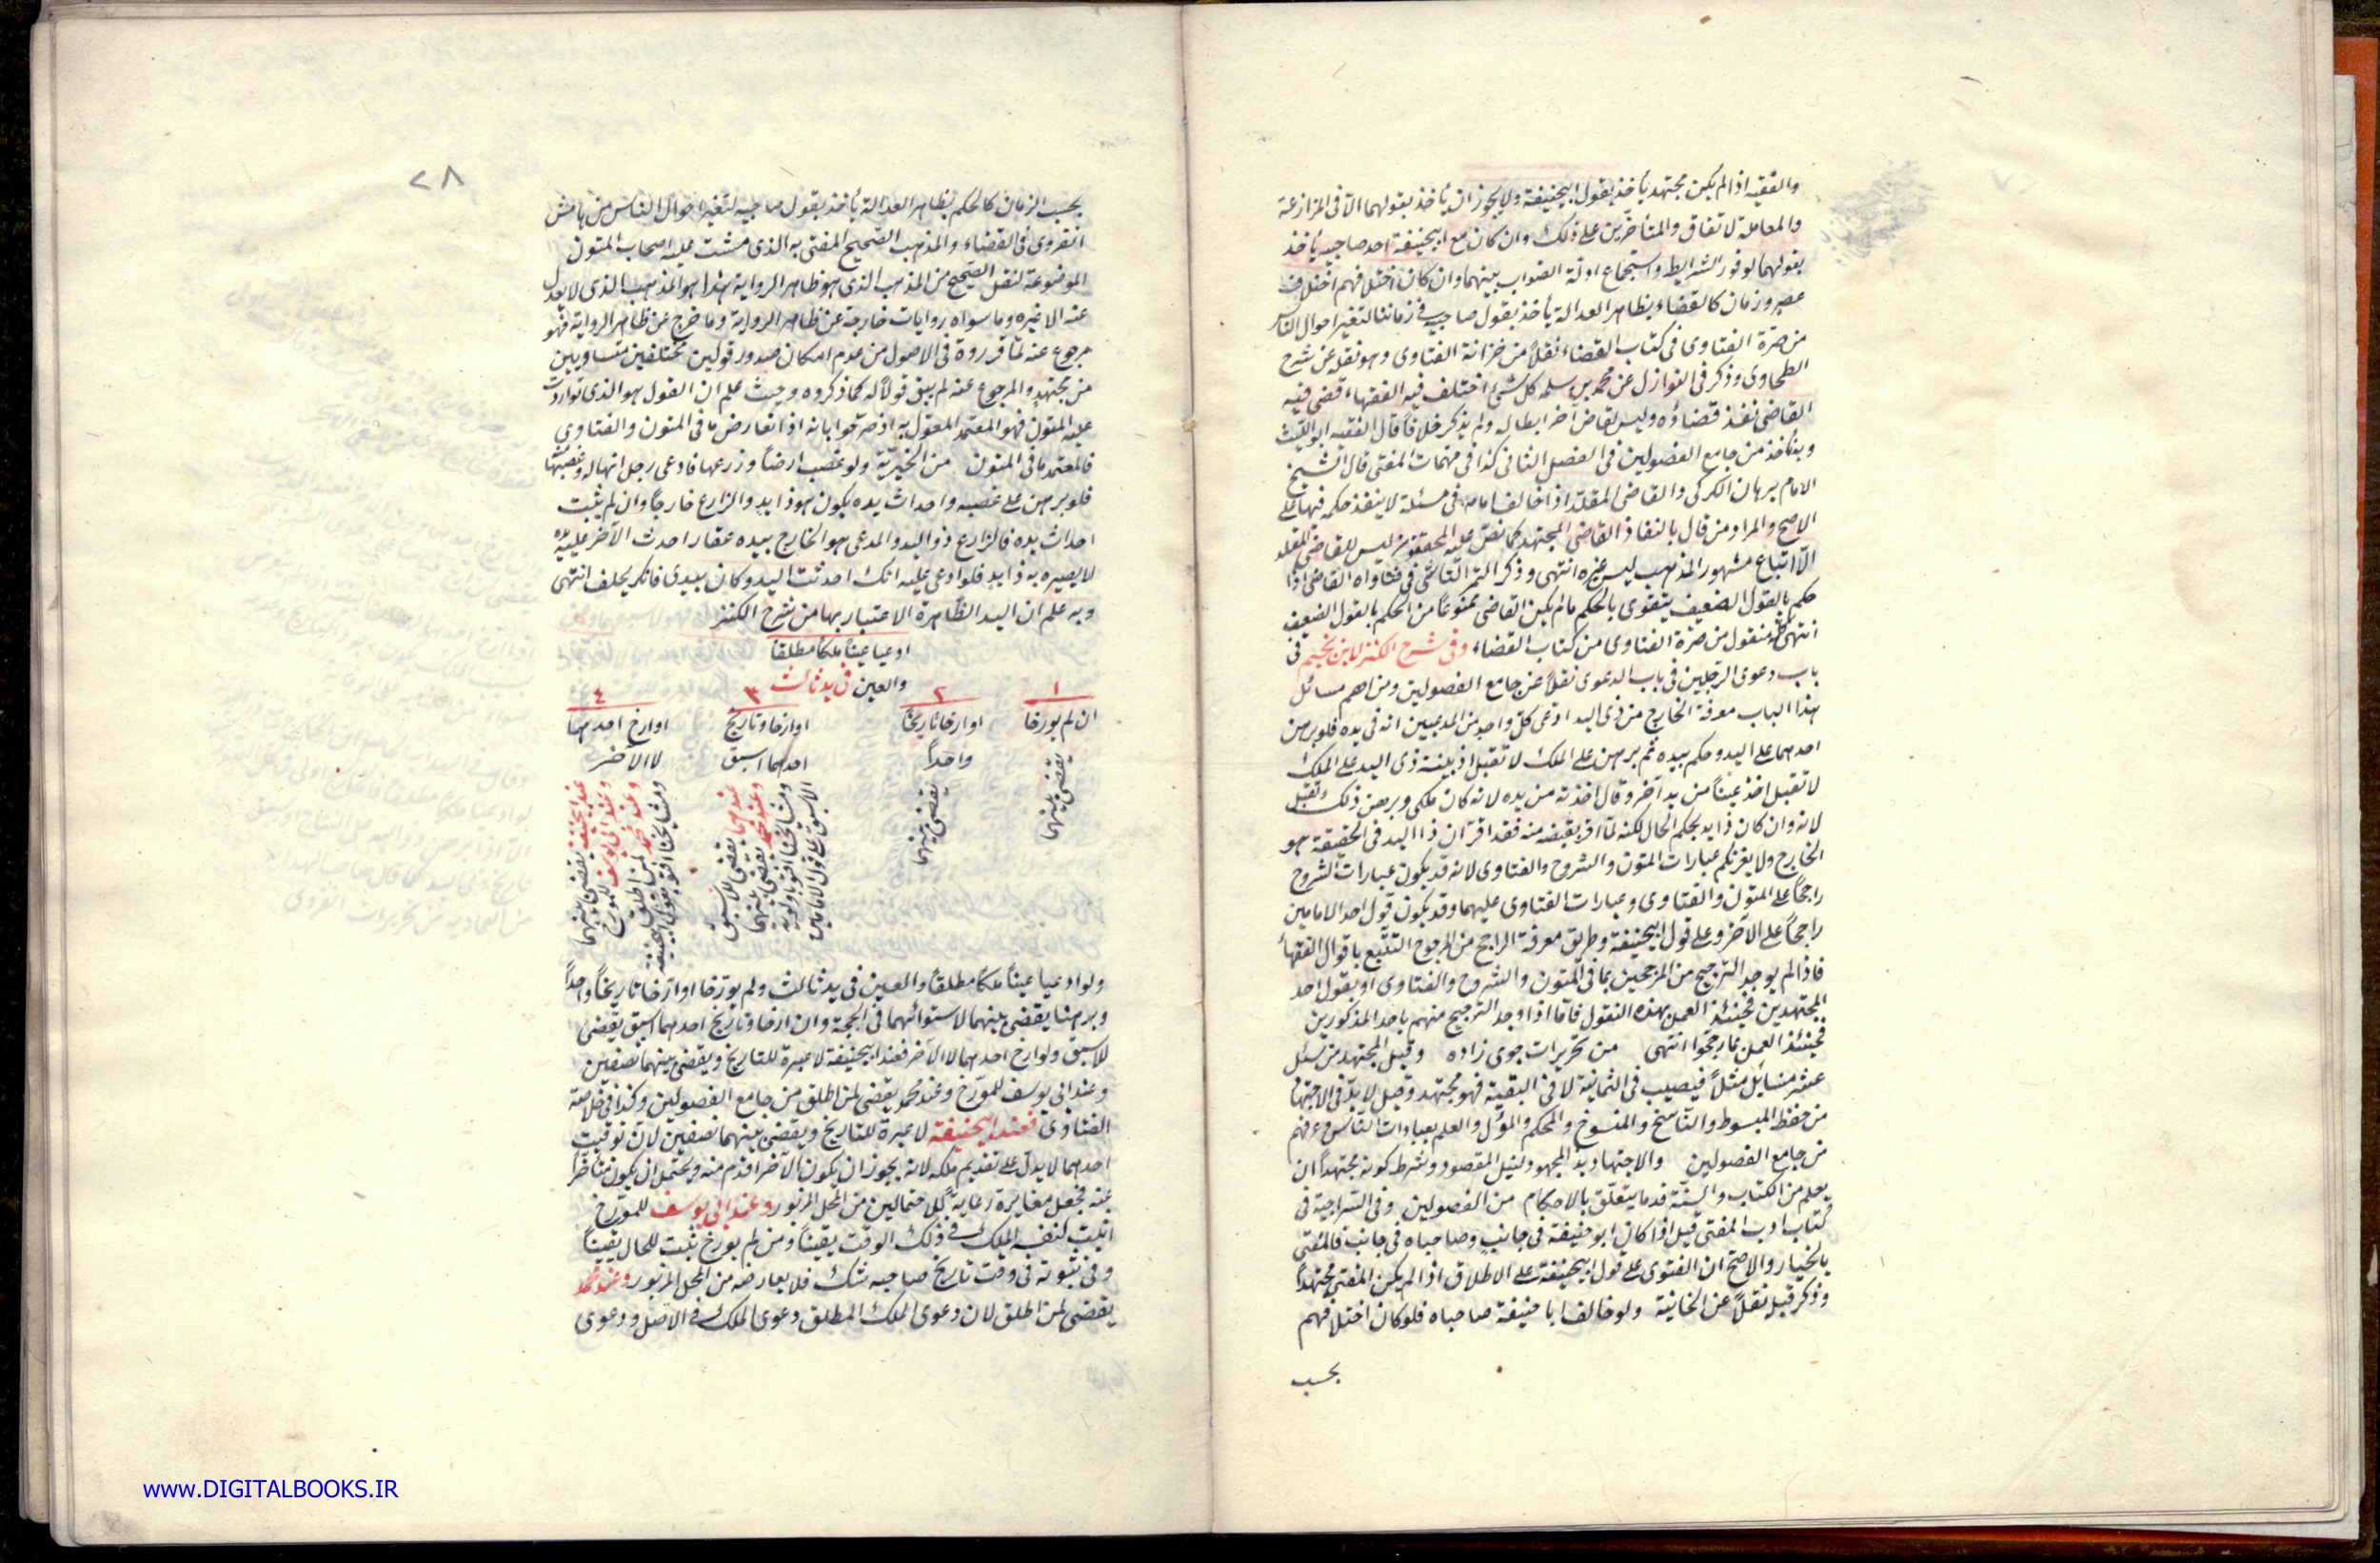 والفقيه اذا لم يكن مجتهد يأخذ بقول ابيحنيفة ولا يجوز ان يأخذ بقولهما الا فى المزارعة
والمعاملة لاتفاق والمتأخرين على ذلك وان كان مع ابيحنيفة احد صاحبيه يأخذ
بقولهما لوفور الشرايط واستجماع ادلة الصواب بينهما وان كان اختلافهم اختلاف
عصر وزمان كالقضاء بظاهر العدالة يأخذ بقول صاحبيه فى زماننا لتغير احوال الناس
من صرة الفتاوى فى كتاب القضاء نقلاً من خزانة الفتاوى وهو نقل عن شرح
الطحاوى وذكر فى النوازل عن محمد بن سلمه كل شئ اختلف فيه الفقهاء قضى فيه
القاضى نفذ قضاؤه وليس لقاض آخر ابطاله ولم يذكر خلافاً قال الفقيه ابو الليث
وبه نأخذ من جامع الفصولين فى الفصل الثانى كذا فى مهمات المفتى قال الشيخ
الامام برهان الكركى والقاضى المقلد اذا خالف امامه فى مسئلة لا ينفذ حكمه فيها على
الاصح والمراد من قال بالنفاذ القاضى المجتهد كما نص عليه المحققون ليس للقاضى المقلد
الا اتباع مشهور المذهب ليس غيره انتهى وذكر التمرتاشى فى فتاواه القاضى اذا
حكم بالقول الضعيف يتقوى بالحكم ما لم يكن القاضى ممنوعاً من الحكم بالقول الضعيف
انتهى كله منقول من صرة الفتاوى من كتاب القضاء وفى شرح الكنز لابن نجيم فى
باب دعوى الرجلين فى باب الدعوى نقلاً عن جامع الفصولين ومن اهم مسائل
هذا الباب معرفة الخارج من ذى اليد ادعى كل واحد من المدعيين انه فى يده فلو برهن
احدهما على اليد وحكم بيده ثم برهن على الملك لا تقبل اذ بينة ذى اليد على الملك
لا تقبل اخذ عيناً من يد آخر وقال اخذته من يده لانه كان ملكى وبرهن ذلك تقبل
لانه وان كان ذا يد بحكم الحال لكنه لما اقر بقبضه منه فقد اقر ان ذا اليد فى الحقيقة هو
الخارج ولا يغرنكم عبارات المتون والشروح والفتاوى لانه قد يكون عبارات الشروح
راجحاً على المتون والفتاوى وعبارات الفتاوى عليهما وقد يكون قول احد الامامين
راجحاً على الآخر وعلى قول ابيحنيفة وطريق معرفة الراجح من المرجوح التتبع باقوال الفقهاء
فاذا لم يوجد الترجيح من المرجحين بما فى المتون والشروح والفتاوى او بقول احد
المجتهدين فحينئذ العمل بهذه النقول فاما اذا وجد الترجيح منهم باحد المذكورين
فحينئذ العمل بما رجحوا انتهى من تحريرات جوى زاده وقيل المجتهد من سئل
عشر مسايل مثلاً فيصيب فى الثمانية لا فى البقية فهو مجتهد وقيل لابد فى الاجتهاد
من حفظ المبسوط والناسخ والمنسوخ والمحكم والمؤل والعلم بعبادات الناس وعرفهم
من جامع الفصولين والاجتهاد بذ المجهود لنيل المقصود وشرط كونه مجتهداً ان
يعلم من الكتاب والسنة قدما يتعلق بالاحكام من الفصولين وفى السراجية فى
كتاب ادب المفتى قيل اذا كان ابو حنيفة فى جانب وصاحباه فى جانب فالمفتى
بالخيار والاصح ان الفتوى على قول ابيحنيفة على الاطلاق اذا لم يكن المفتى مجتهداً
وذكر قبيله نقلاً عن الخانية ولو خالف ابا حنيفة صاحباه فلو كان اختلافهم
بحسب
٢٨
بحسب الزمان كالحكم بظاهر العدالة يأخذ بقول صاحبيه لتغير احوال الناس من هامش
انقروى فى القضاء والمذهب الصحيح المفتى به الذى مشت عليه اصحاب المتون
الموضوعة لنقل الصحيح من المذهب الذى هو ظاهر الرواية هذا هو المذهب الذى لا يعدل
عنه الا غيره وما سواه روايات خارجة عن ظاهر الرواية وما خرج عن ظاهر الرواية فهو
مرجوع عنه لما قرروه فى الاصول من عدم امكان صدور قولين مختلفين متساويين
من مجتهد والمرجوع عنه لم يبق قولاً له كما ذكروه وحيث علم ان القول هو الذى تواردت
عليه المتون فهو المعتمد المعول به اذ صرحوا بانه اذا تعارض ما فى المتون والفتاوى
فالمعتمد ما فى المتون من الخيرية ولو غصب ارضاً وزرعها فادعى رجل انها له وغصبتها
فلو برهن على غصبه واحداث يده يكون هو ذا يد والزارع خارجاً وان لم يثبت
احداث يده فالزارع ذو اليد والمدعى هو الخارج بيده عقار احدث الآخر عليه يده
لا يصير به ذا يد فلو ادعى عليه انك احدثت اليد وكان بيدى فانكر يحلف انتهى
وبه علم ان اليد الظاهرة لا اعتبار بها من شرح الكنز
ادعيا عيناً ملكاً مطلقا
والعين فى يد ثالث
١ ٢ ٣ ٤
ان لم يورخا
يقضى بينهما
او ارخا تاريخاً
واحداً
يقضى بينهما
او ارخا وتاريخ
احدهما اسبق
عندهما يقضى للاسبق
وعند محمد يقضى بينهما
ومشايخنا افتوا باولوية
الاسبق على قول الامامين
او ارخ احدهما
لا الآخر
عند ابيحنيفه يقضى بينهما
وعند ابى يوسف للمورخ
وعند محمد لمن اطلق
ومشايخنا افتوا بقول ابيحنيفة
ولو ادعيا عيناً ملكاً مطلقاً والعين فى يد ثالث ولم يورخا او ارخا تاريخاً واحداً
وبرهنا يقضى بينهما لاستوائهما فى الحجة وان ارخا وتاريخ احدهما اسبق يقضى
للاسبق ولو ارخ احدهما لا الآخر فعند ابيحنيفة لا عبرة للتاريخ ويقضى بينهما نصفين
وعند ابى يوسف للمورخ وعند محمد يقضى لمن اطلق من جامع الفصولين وكذا فى خلاصة
الفتاوى فعند ابيحنيفة لا عبرة للتاريخ ويقضى بينهما نصفين لان توقيت
احدهما لا يدل على تقديم ملكه لانه يجوز ان يكون الآخر اقدم منه ويحتمل ان يكون متأخراً
عنه فجعل مغايرة رعاية لكل احتمالين من المحل المزبور وعند ابى يوسف للمورخ
اثبت لنفسه الملك فى ذلك الوقت يقيناً ومن لم يورخ ثبت للحال يقيناً
وفى ثبوته فى وقت تاريخ صاحبه شك فلا يعارضه من المحل المزبور وعند محمد
يقضى لمن اطلق لان دعوى الملك المطلق دعوى الملك فى الاصل ودعوى
www.DIGITALBOOKS.IR